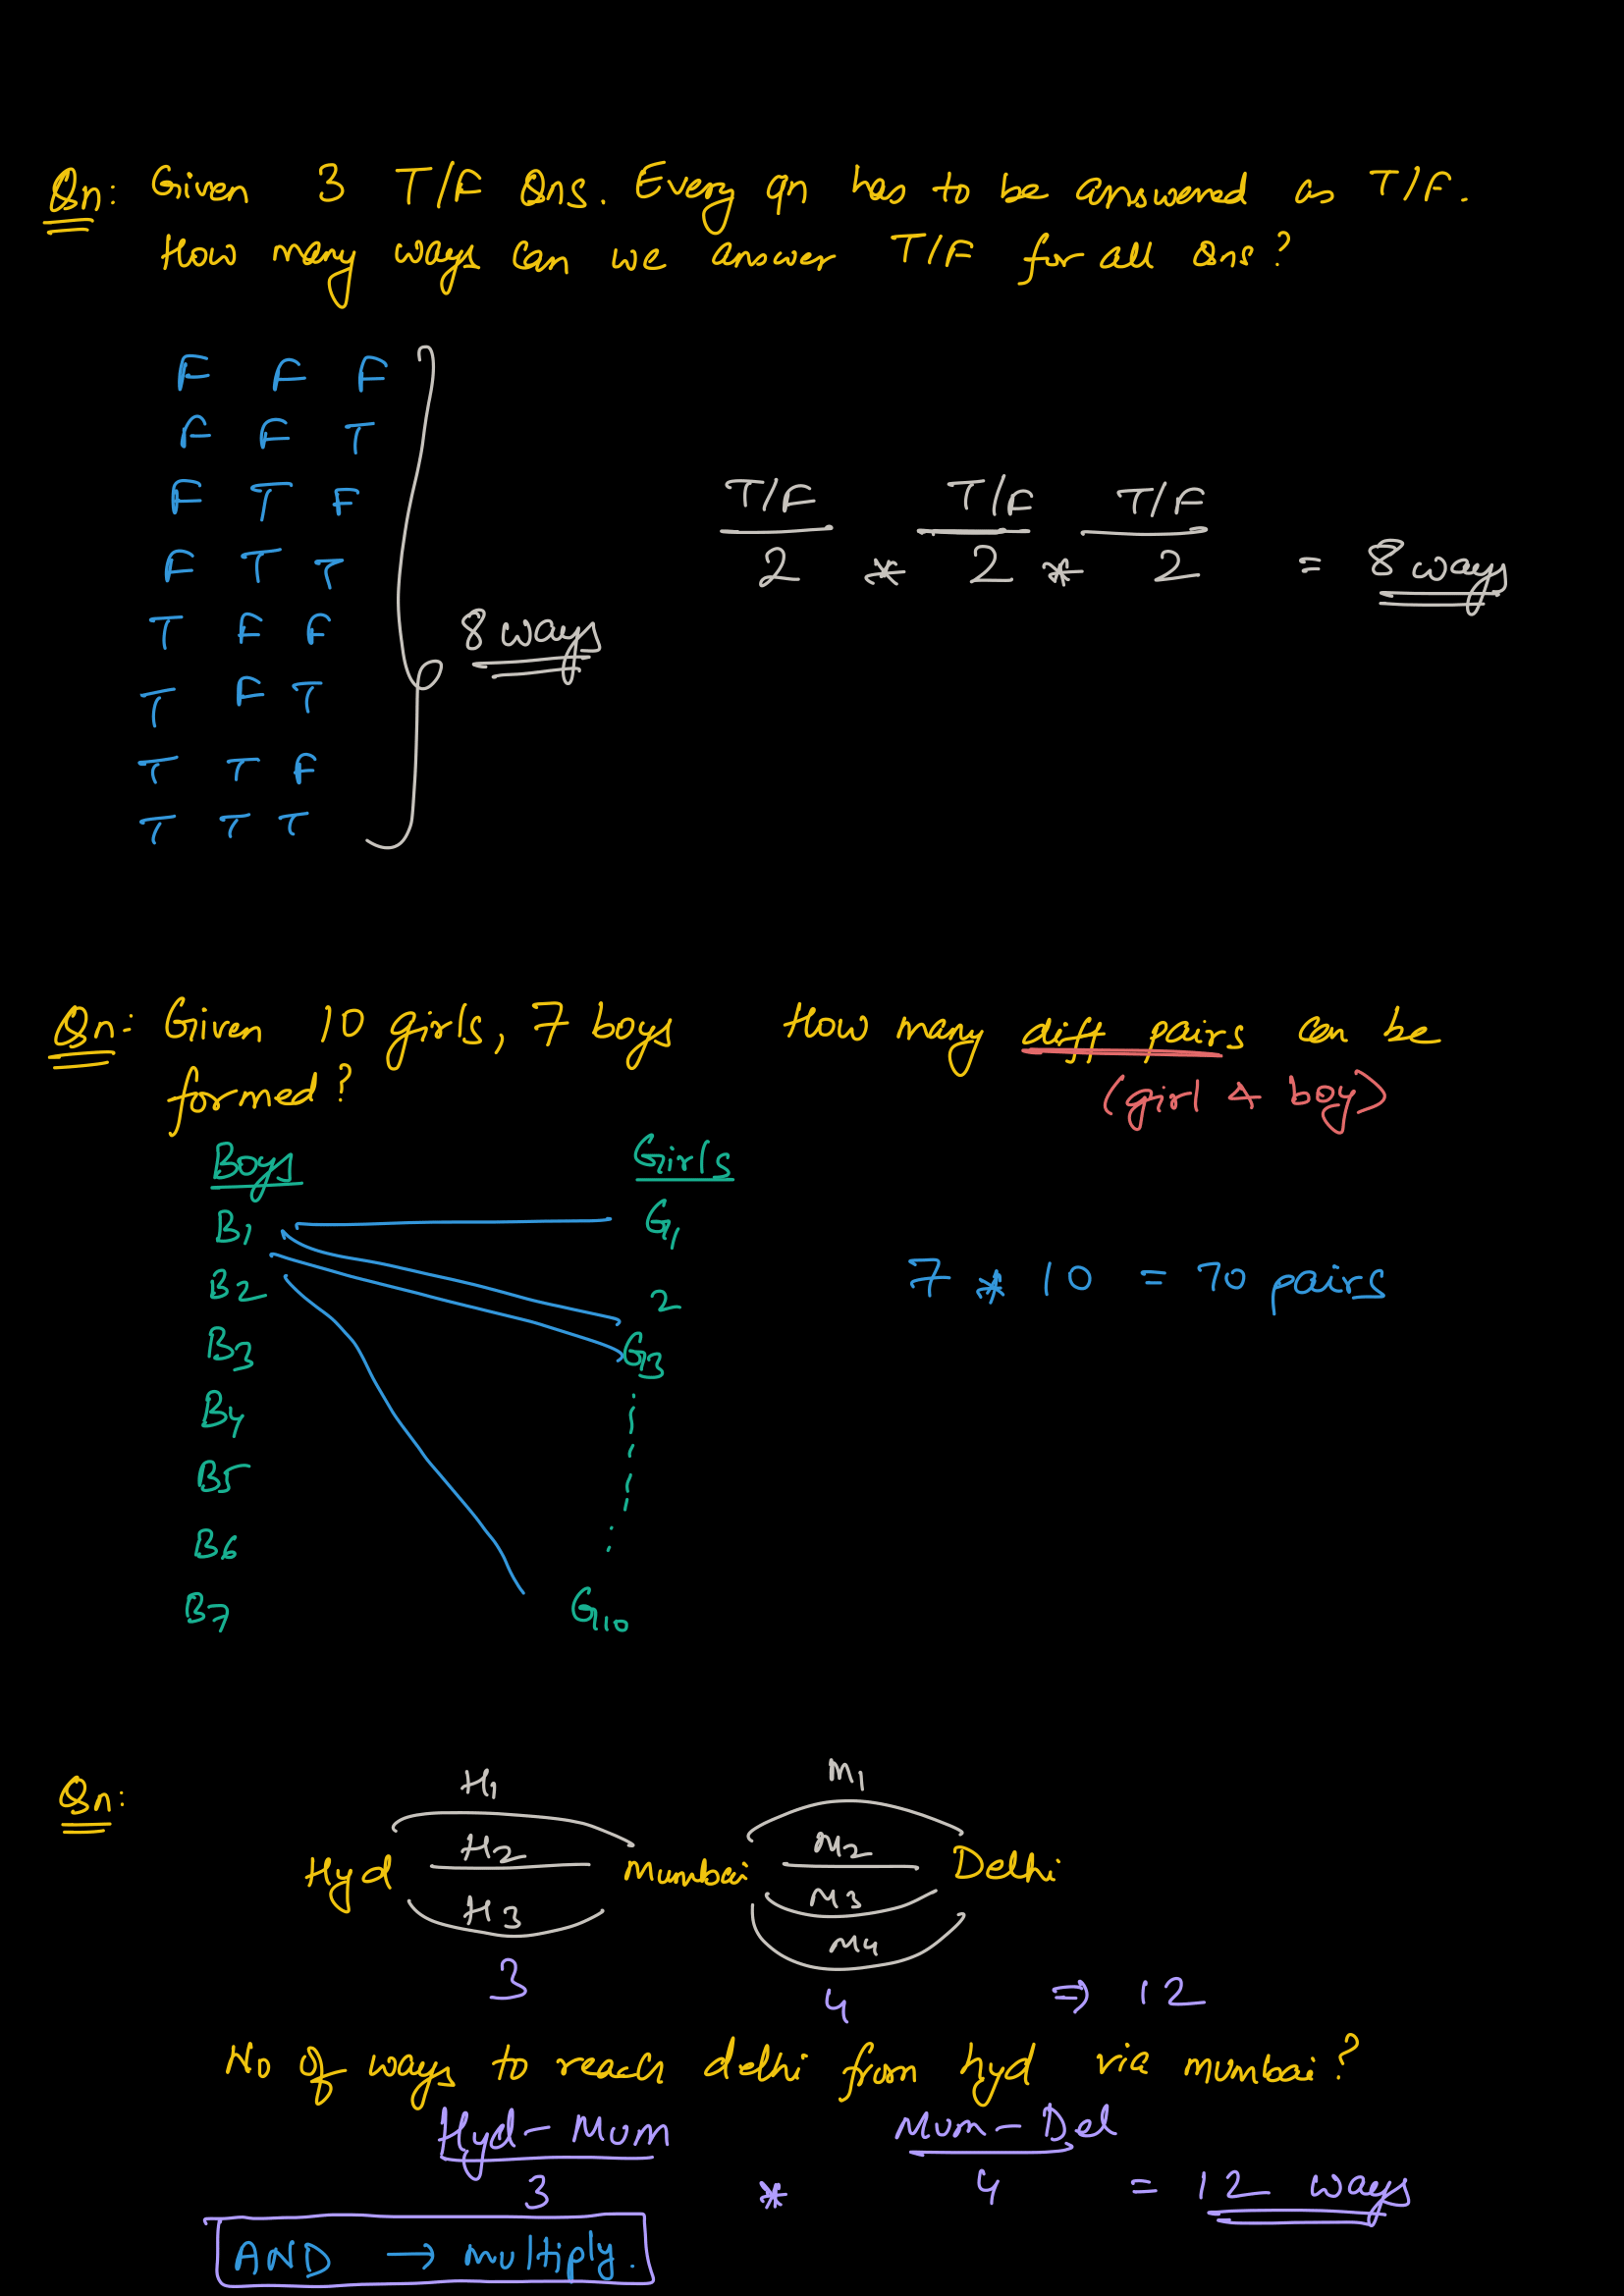 Qn: Given 3 T/F Qns. Every qn has to be answered as T/F.
How many ways can we answer T/F for all Qns?
F F F
F F T
F T F
F T T
T F F
T F T
T T F
T T T
8 ways
T/F T/F T/F
2 * 2 * 2 = 8 ways
Qn: Given 10 girls, 7 boys How many diff pairs can be
formed? (girl & boy)
Boys Girls
B1 G1
B2 2
B3 G3
B4
B5
B6
B7 G10
7 * 10 = 70 pairs
Qn:
H1 M1
H2 M2
Hyd Mumbai Delhi
H3 M3
M4
3 4 ⇒ 12
No of ways to reach delhi from hyd via mumbai?
Hyd - Mum Mum - Del
3 * 4 = 12 ways
AND → multiply.